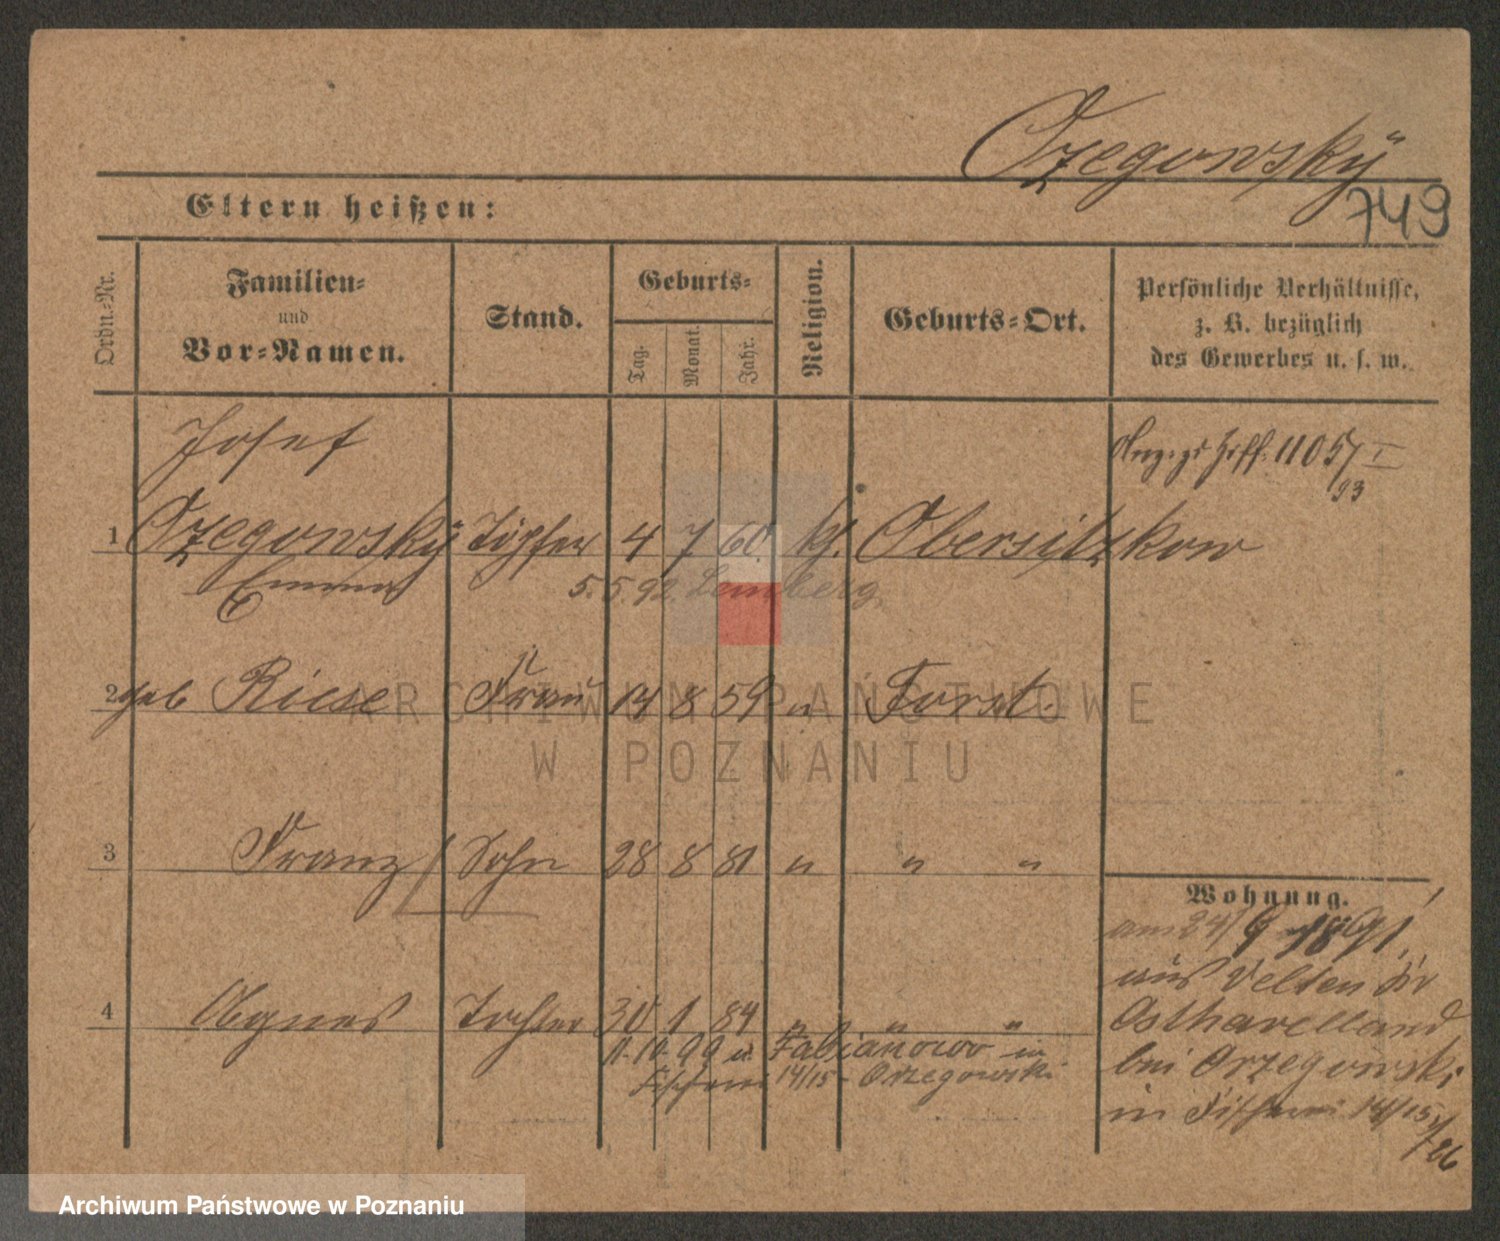 Ozegowsky
749
Eltern heißen:
Ordn.-Nr.
Familien-
und
Vor-Namen.
Stand.
Geburts-
Tag.
Monat.
Jahr.
Religion.
Geburts-Ort.
Persönliche Verhältnisse,
z. B. bezüglich
des Gewerbes u. s. w.
Josef
1 Ozegowsky Töpfer 4 7 60. kj. Obersitzko
1105/ I
93
Emma
5. 5. 92. Lemberg.
2 geb Riese Frau 14 8 59 " Forst.
3 Franz Sohn 28 8 81 " " "
4 Agnes Tochter 30 1 84 " " "
11.10.99 u. Fabianowo in
Fischerei 14/15 - Orzegowski
Wohnung.
am 24/9 1891,
aus Velten Kr
Osthavelland
bei Orzegowski
in Fischerei 14/15
/26
ARCHIWUM PAŃSTWOWE
W POZNANIU
Archiwum Państwowe w Poznaniu